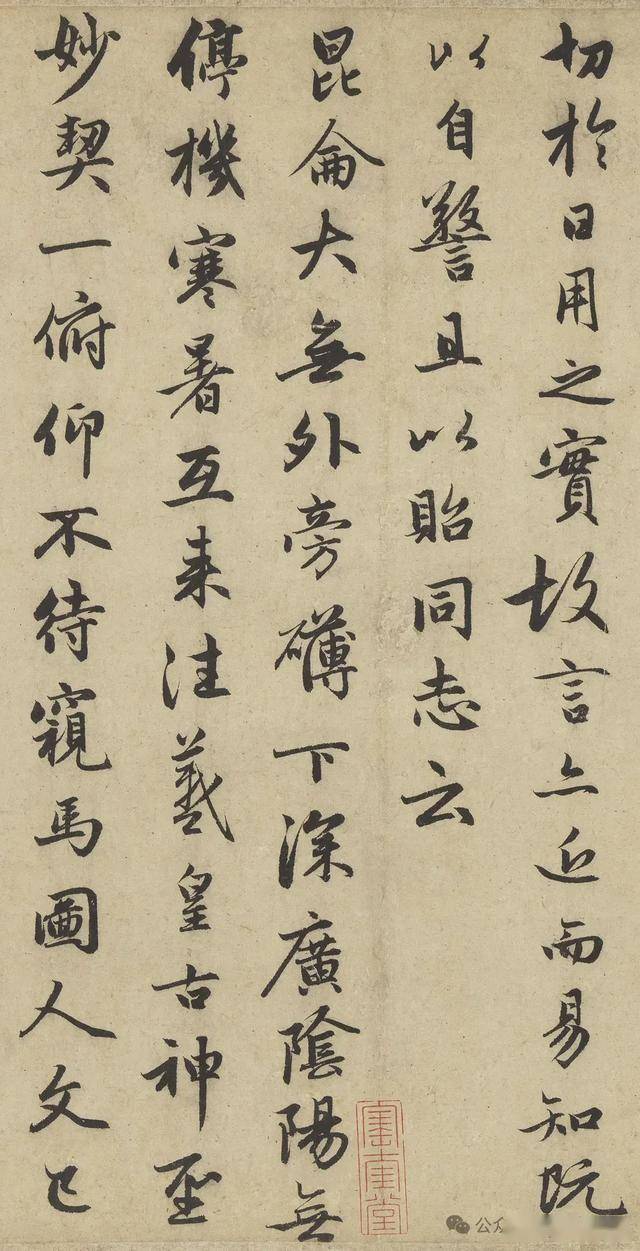 切於日用之實故言亦近而易知既
以自警且以貽同志云
昆侖大無外旁礴下深廣陰陽無
停機寒暑互来往羲皇古神聖
妙契一俯仰不待窺馬圖人文已